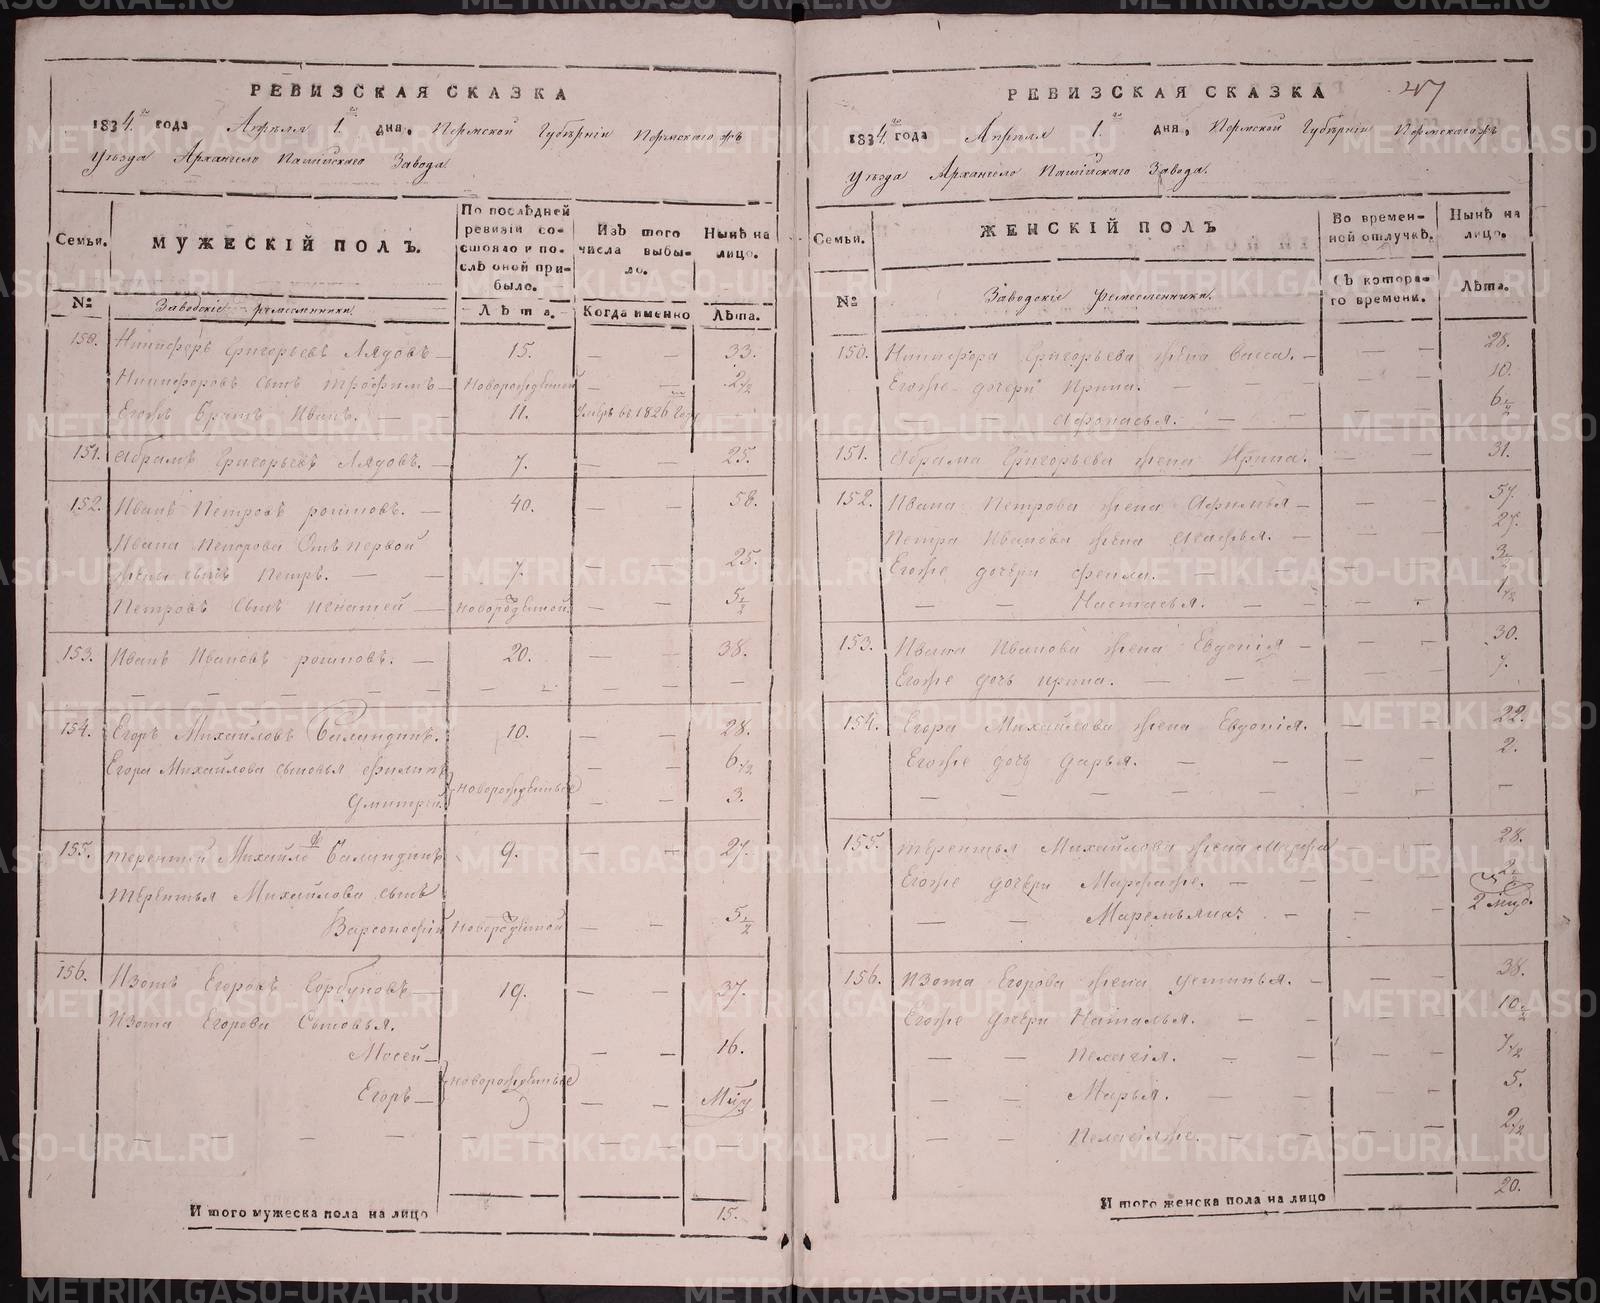 РЕВИЗСКАЯ СКАЗКА
1834.го года Апреля 1.го дня, Пермской Губѣрніи Пермскаго жъ
Уѣзда Архангело Пашійскаго Завода.
Семьи.
МУЖЕСКІЙ ПОЛЪ.
По послѣдней ревизіи состояло и послѣ оной прибыло.
Изъ того числа выбыло.
Нынѣ на лицо.
№
Заводскіе ремесленники.
Лѣта.
Когда именно
Лѣта.
150. Никифоръ Григорьевъ Лядовъ — 15. — — 33.
Никифоровъ сынъ Трофимъ — Новорожденной — — 2 1/2
Егоже братъ Иванъ. — — 11. Умеръ въ 1826 году —
151. Абрамъ Григорьевъ Лядовъ. — 7. — — 25.
152. Иванъ Петровъ рошповъ. — 40. — — 58.
Ивана Петрова Отъ первой
жены сынъ Петръ. — — 7. — — 25.
Петровъ сынъ Игнатей — новорожденной — — 5 1/2
153. Иванъ Ивановъ рошповъ. — 20. — — 38.
154. Егоръ Михайловъ Саландинъ. 10. — — 28.
Егора Михайлова сыновья Филипъ — — 6 1/2
новорожденные
Дмитрей — — 3.
155. Терентей Михайло Саландинъ 9. — — 27.
Терентья Михайлова сынъ
Варсонофій новорожденной — — 5 1/2
156. Изотъ Егоровъ Горбуновъ — 19. — — 37.
Изота Егорова Сыновья.
Мосей — — — 16.
новорожденные
Егоръ — — —
И того мужеска пола на лицо 15.
РЕВИЗСКАЯ СКАЗКА
1834.го года Апреля 1.го дня, Пермской Губѣрніи Пермскаго жъ
Уѣзда Архангело Пашійскаго Завода.
Семьи.
ЖЕНСКІЙ ПОЛЪ
Во временной отлучкѣ.
Нынѣ на лицо.
№
Заводскіе ремесленники.
Съ котораго времени.
Лѣта.
150. Никифора Григорьева жена Васса. — — — 28.
Егоже дочери Ирина. — — — 10.
— Афонасья. — — — 6 1/2
151. Абрама Григорьева жена Ирина. — — 31.
152. Ивана Петрова жена Афимья — — — 57.
Петра Иванова жена Агафья. — — — 27.
Егоже дочери Фекла. — — — 3 1/2
— — Настасья. — — — 1 1/2
153. Ивана Иванова жена Евдокія — — — 30.
Егоже дочь Ирина. — — — 7.
154. Егора Михайлова жена Евдокія. — — 22.
Егоже дочь Дарья. — — — 2.
155. Терентья Михайлова жена Марфа — — 28.
Егоже дочери Марфаже. — — — 2 1/2
— — Маремьяна. — — — 2 мцо.
156. Изота Егорова жена Устинья. — — — 38.
Егоже дочери Наталья. — — — 10 1/2
— — Пелагія. — — — 7 1/2
— — Марья. — — — 5.
— — Пелагіяже. — — — 2 1/2
И того женска пола на лицо 20.
METRIKI.GASO-URAL.RU